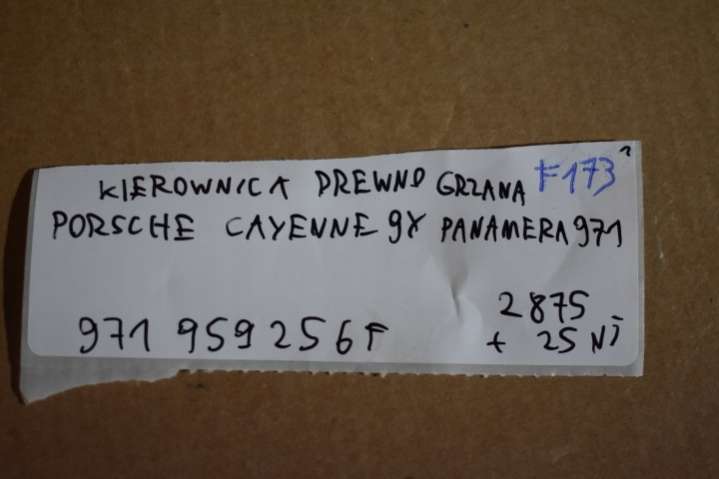 KIEROWNICA DREWNO GRZANA F173
PORSCHE CAYENNE 9Y PANAMERA 971
971 959 256 F
2875
+ 25 NJ